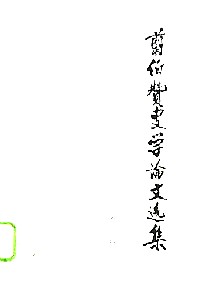 翦伯赞史学论文选集